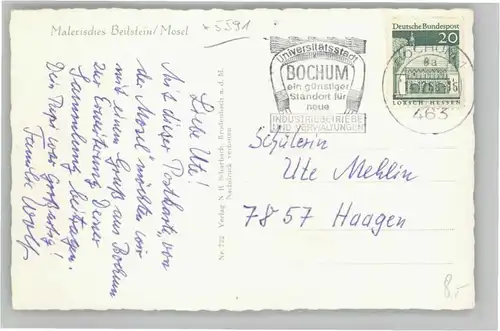 Malerisches Beilstein/Mosel
*5591
Liebe Ute!
Mit dieser Postkarte von
der „Mosel" möchten wir
mit einem Gruß aus Bochum
zur Erweiterung Deiner
Sammlung beitragen.
Dein Papi war Großartig!
Familie Wolf
Nr. 722 Verlag
Nachdruck verboten
Universitätsstadt
BOCHUM
ein günstiger
Standort für
neue
INDUSTRIEBETRIEBE
UND VERWALTUNGEN
BOCHUM 1
8a
463
Deutsche Bundespost
20
LORSCH-HESSEN
Schülerin
Ute Mehlin
7857 Haagen
8,-